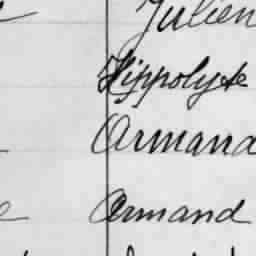 Julien
Hippolyte
Armand
Armand